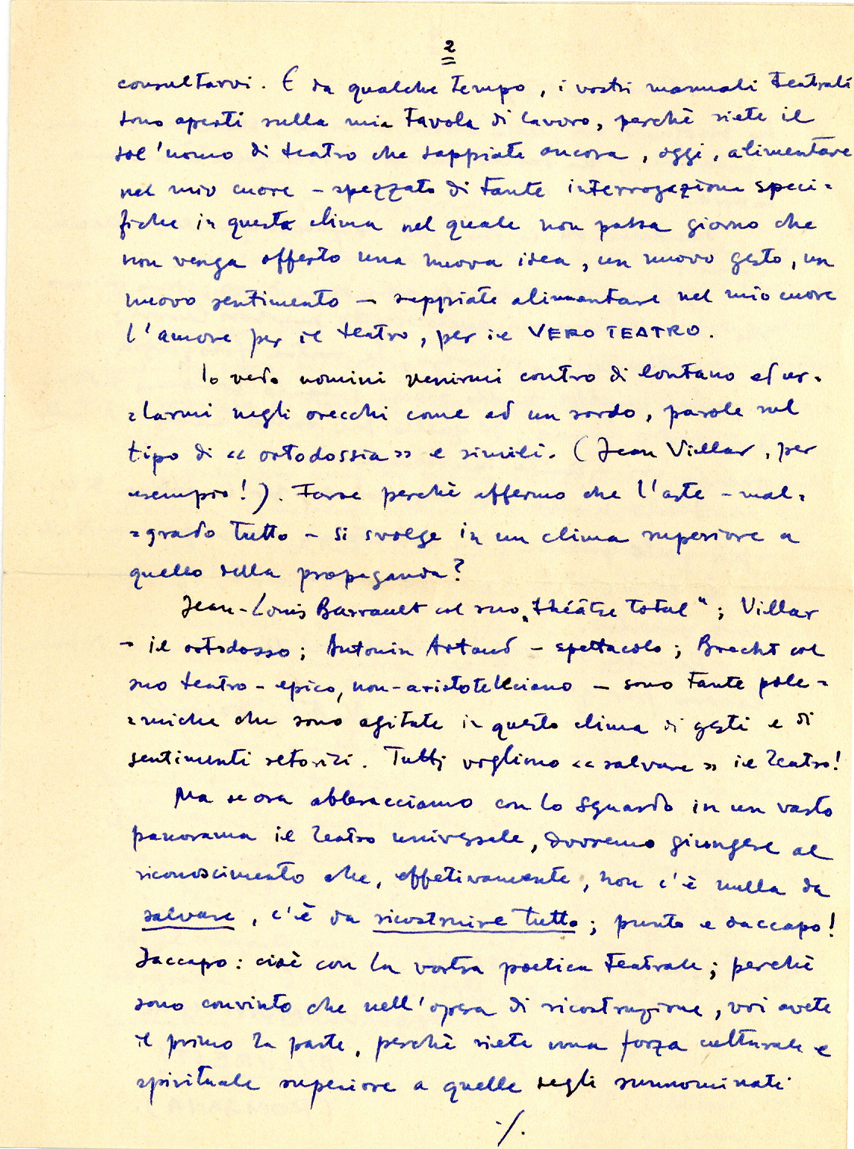 2
consultarvi. E da qualche tempo, i vostri manuali teatrali
sono aperti sulla mia tavola di lavoro, perchè siete il
sol'uomo di teatro che sappiate ancora, oggi, alimentare
nel mio cuore – spezzato di tante interrogazioni speci=
fiche in questo clima nel quale non passa giorno che
non venga offerto una nuova idea, un nuovo gesto, un
nuovo sentimento – sappiate alimentare nel mio cuore
l'amore per il teatro, per il VERO TEATRO.
Io vedo uomini venirmi contro di lontano ed ur=
=larmi negli orecchi come ad un sordo, parole sul
tipo di « ortodossia » e simili. (Jean Villar, per
esempio!). Forse perchè affermo che l'arte – mal=
=grado tutto – si svolge in un clima superiore a
quello della propaganda?
Jean-Louis Barrault col suo „théâtre total"; Villar
– il ortodosso; Antonin Artaud – spettacolo; Brecht col
suo teatro-epico, non-aristotelliciano – sono tante pole=
=miche che sono agitate in questo clima di gesti e di
sentimenti retorizi. Tutti vogliono « salvare » il Teatro!
Ma se ora abbracciamo con lo sguardo in un vasto
panorama il Teatro universale, dovremo giungere al
riconoscimento che, effetivamente, non c'è nulla da
salvare, c'è da ricostruire tutto; punto e daccapo!
Daccapo: cioè con la vostra poetica teatrale; perchè
sono convinto che nell'opera di ricostruzione, voi avete
il primo la parte, perchè siete una forza culturale e
spirituale superiore a quelle degli sunnominati
./.